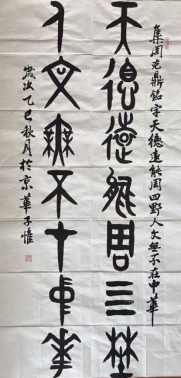 集周克鼎銘字天德遠能周四野人文無不在中華
天德遠能周四野
人文無不在中華
歲次乙巳秋月於京華子惟